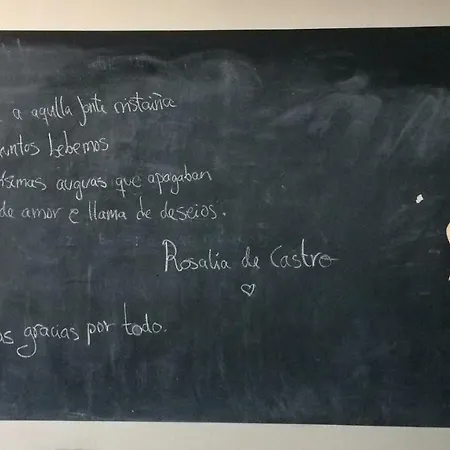 a aqulla fonte cristaiña
juntos bebemos
ísimas auguas que apagaban
de amor e llama de deseios.
Rosalía de Castro
as gracias por todo.